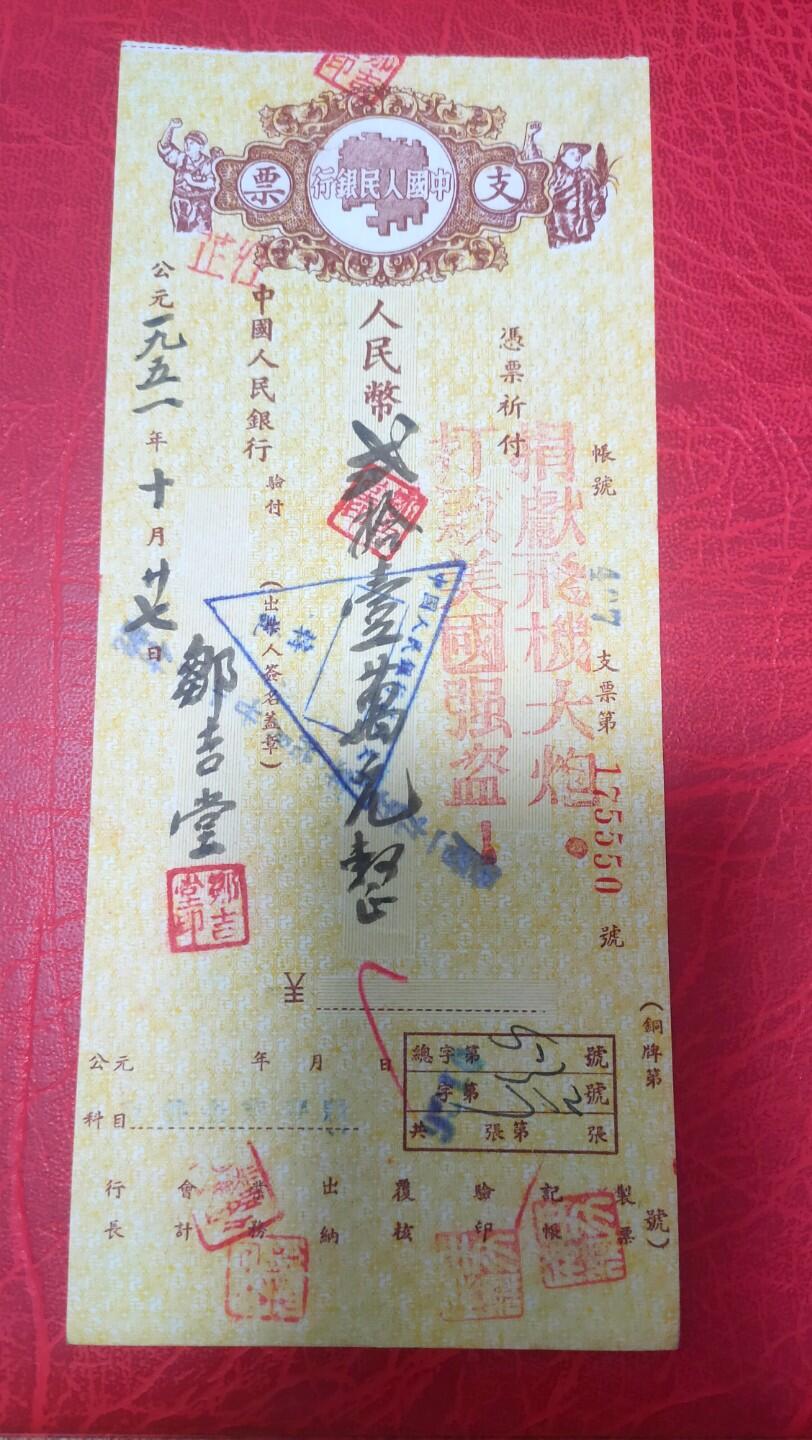 支票
中國人民銀行
帳號 407 支票第 175550 號
捐獻飛機大炮！
打敗美國强盗！
憑票祈付
人民幣 貳拾壹萬元整
中國人民銀行 驗付
（出票人簽名蓋章）
鄒吉堂
鄒吉堂印
公元一九五一年十月廿七日
中國人民銀行
（銅牌第 號）
總字第 號
字第 號
共 張第 張
公元 年 月 日
科目
製票
記帳
驗印
覆核
出納
業務
會計
行長